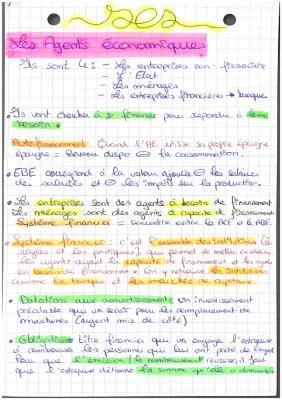 SES
Les Agents économiques.
Ils sont 4 : - Les entreprises non-financière
- L'Etat
- Les ménages
- Les entreprises financières → banque
• Ils vont chercher à se financer pour répondre à leurs
besoins.
Autofinancement : Quand l'AE utilise sa propre épargne
épargne = Revenu dispo ⊖ la consommation.
• EBE correspond à la valeur ajoutée ⊖ les salaires
des salariés et ⊖ les impôts sur la production.
• Les entreprises sont des agents à besoin de financement
Les ménages sont des agents à capacité de financement
Système financier = rencontre entre le ACF et le ABF.
• Système financier : c'est l'ensemble des institutions (
règles et les pratiques) qui permet de mettre en
les agents ayant la capacité de financement et les
en besoin de financement. On y retrouve les institutions
comme la banque et les marchés de capitaux.
• Dotations aux amortissements : un investissement
préalable qui va servir pour les remplacement de
machines (argent mis de côté)
• Obligations : titre financier qui engage l'entreprise
à rembourser les personnes qui lui ont prêté de l'argent
que l'émission le remboursement il faut
que l'entreprise la somme qu'elle a